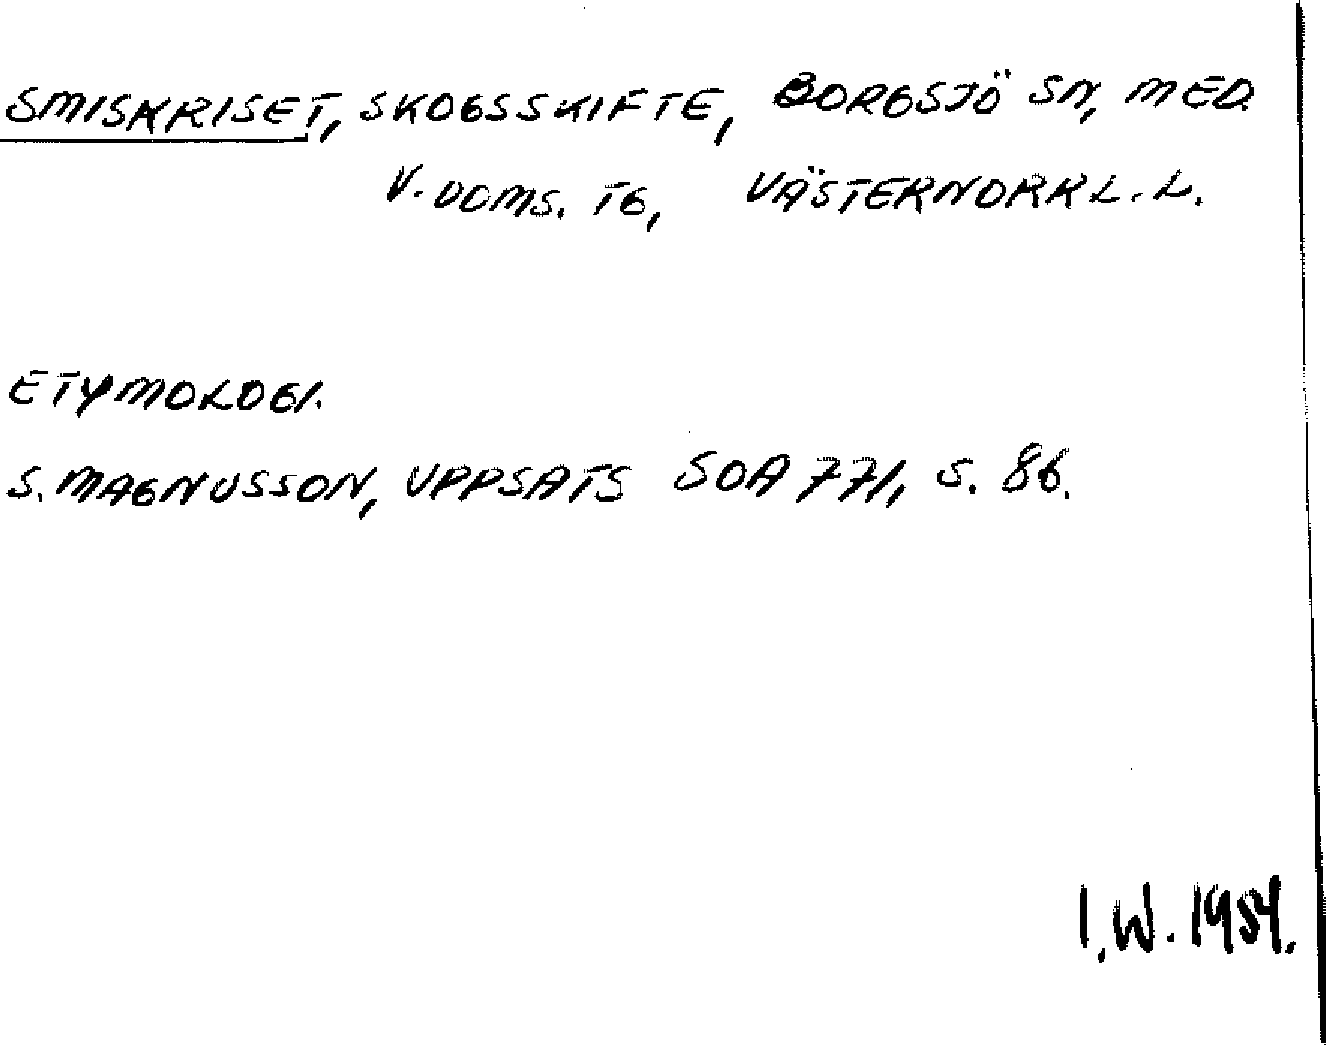 SMISKRISET, SKOGSSKIFTE, BORGSJÖ SN, MED.
V. DOMS. TG, VÄSTERNORRL. L.
ETYMOLOGI.
S. MAGNUSSON, UPPSATS SOA 771, S. 86.
I.W. 1954.